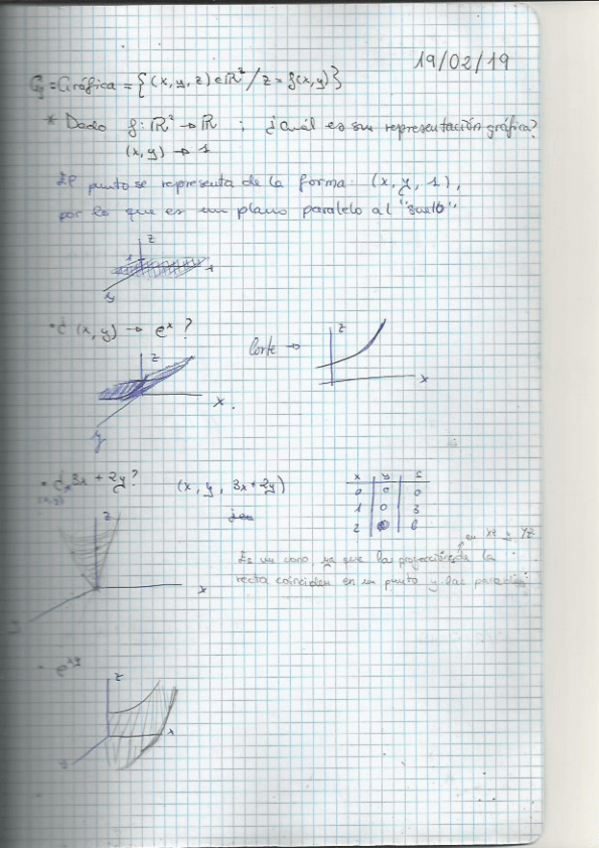 19/02/19
G = Gráfica = {(x, y, z) ∈ ℝ² / z = f(x,y)}
* Dado f: ℝ² → ℝ ; ¿Cuál es su representación gráfica?
(x, y) → 1
El punto se representa de la forma: (x, y, 1),
por lo que es un plano paralelo al "suelo".
z
1
1
y
• ¿(x, y) → eˣ ?
Corte →
z
x
z
x
y
• ¿ 3x + 2y?
(x, y, 3x + 2y)
x y z
0 0 0
1 0 3
2 0 6
z
x
en xz y yz
Es un cono, ya que la proyección de la
recta coinciden en un punto y las
• e^xy
z
x
y